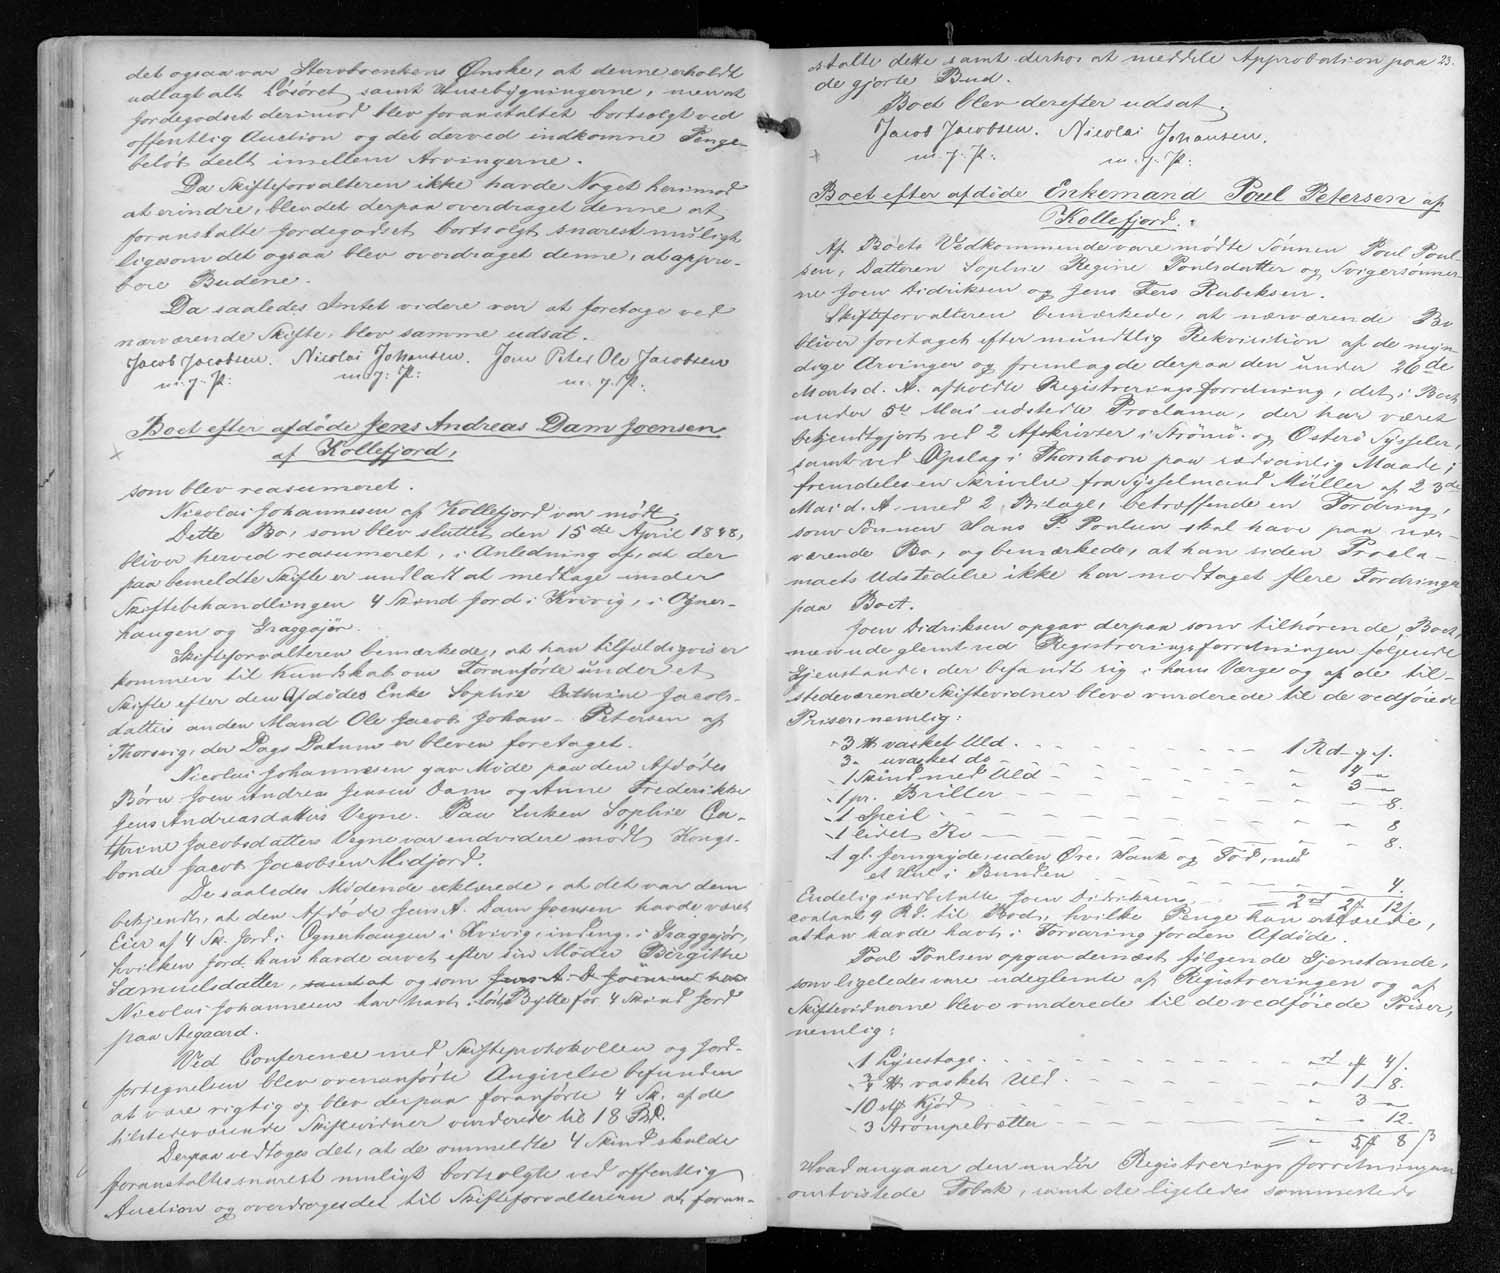 det ogsaa var Stervboenkens Ønske, at denne erholdt
udlagt alt Løsøret samt Husebygningerne, men at
Jordegodset derimod blev foranstaltet bortsolgt ved
offentlig Auction og det derved indkomne Penge-
beløb deelt imellem Arvingerne.
Da Skifteforvalteren ikke havde Noget herimod
at erindre, blev det derpaa overdraget denne at
foranstalte Jordegodset bortsolgt snarest muligt
ligesom det ogsaa blev overdraget denne, at appro-
bere Budene.
Da saaledes Intet videre var at foretage ved
nærværende Skifte, blev samme udsat.
Jacob Jacobsen. Nicolai Johansen. Joen Peter Ole Jacobsen
m. f. P: m. f. P: m. f. P:
Boet efter afdøde Jens Andreas Dam Joensen
af Kollefjord,
som blev reasumeret.
Nicolai Johannesen af Kollefjord var mødt.
Dette Bo, som blev sluttet den 15de April 1848,
bliver herved reasumeret, i Anledning af, at der
paa bemeldte Skifte er undladt at medtage under
Skiftebehandlingen 4 Skind Jord i Kvivig, i Ogner-
haugen og Graggajør.
Skifteforvalteren bemærkede, at han tilfældigviis er
kommen til Kundskab om Foranførte under et
Skifte efter den Afdødes Enke Sophie Cathrine Jacobs-
datters anden Mand Ole Jacob Johan- Petersen af
Thorsvig, der Dags Datum er bleven foretaget.
Nicolai Johannesen gav Møde paa den Afdødes
Børn Joen Andreas Jensen Dam og Anne Frederikke
Jens Andreasdatters Vegne. Paa Enken Sophie Ca-
thrine Jacobsdatters Vegne var endvidere mødt Kongs-
bonde Jacob Jacobsen Midjord.
De saaledes Mødende erklærede, at det var dem
bekjendt, at den Afdøde Jens A. Dam Joensen havde været
Eier af 4 Sk. Jord i Ognerhaugen i Kvivig, indeng. i Graggejør,
hvilken Jord han havde arvet efter sin Moder Birgithe
Samuelsdatter, samt at og som Jens A. D. Joensen har
Nicolai Johannesen har havt i Bytte for 4 Skind Jord
paa Aegaard.
Ved Conference med Skifteprotokollen og Jord-
fortegnelsen blev ovenanførte Angivelse befunden
at være rigtig og blev derpaa foranførte 4 Sk. af de
tilstedeværende Skiftevidner vurderede til 18 Rd.
Derpaa vedtoges det, at de ommeldte 4 Skind skulde
foranstaltes snarest muligt bortsolgte ved offentlig
Auction og overdroges det til Skifteforvalteren at foran-
stalte dette samt derhos at meddele Approbation paa 23.
de gjorte Bud.
Boet blev derefter udsat.
Jacob Jacobsen. Nicolai Johansen.
m. f. P: m. f. P:
Boet efter afdøde Enkemand Poul Petersen af
Kollefjord.:
Af Boets Vedkommende vare mødte Sønnen Poul Poul-
sen, Datteren Sophie Regine Poulsdatter og Svigersønner-
ne Joen Didriksen og Jens Fers Rubeksen.
Skifteforvalteren bemærkede, at nærværende Bo
bliver foretaget efter mundtlig Rekvisition af de myn-
dige Arvinger og fremlagde derpaa den under 26de
Marts d. A. afholdte Registreringsforretning, det i Boet
under 5te Mai udstedte Proclama, der har været
bekjendtgjort ved 2 Afskrivter i Strømø- og Østerø Sysseler,
samt ved Opslag i Thorshavn paa sædvanlig Maade;
fremdeles en Skrivelse fra Sysselmand Müller af 23de
Mai d. A. med 2 Bilage, betræffende en Fordring,
som Sønnen Hans P. Poulsen skal have paa nær-
værende Bo, og bemærkede, at han siden Procla-
maets Udstedelse ikke har modtaget flere Fordringer
paa Boet.
Joen Didriksen opgav derpaa som tilhørende Boet,
men udeglemt ved Registreringsforretningen følgende
Gjenstande, der befandt sig i hans Værge og af de til-
stedeværende Skiftevidner bleve vurderede til de vedføiede
Priser, nemlig:
3 ℔ vasket Uld. 1 Rd " ".
3 " uvasket do 4 "
1 Skind med Uld 3 "
1 pr. Briller 8.
1 Speil 8
1 lidet Ro 8.
1 gl. Jerngryde, uden Øre, Hank og Fod, med
et Hul i Bunden 4.
2 rd 2 ℔ 12 ẞ
Endelig indbetalte Joen Didriksen
contant 9 Rd. til Boet, hvilke Penge han erklærede,
at han havde havt i Forvaring for den Afdøde.
Poul Poulsen opgav dernæst følgende Gjenstande,
som ligeledes vare udeglemte af Registreringen og af
Skiftevidnerne bleve vurderede til de vedføiede Priser,
nemlig:
1 Lysestage. " rd " ℔ 4 ẞ.
3/4 ℔ vasket Uld. " 1 " 8.
10 ℔ Kjød 3 "
3 Strømpebrætter 12.
" 5 ℔ 8 ẞ
Hvad angaaer den under Registreringsforretningen
omtvistede Tobak, samt de ligeledes sammesteds